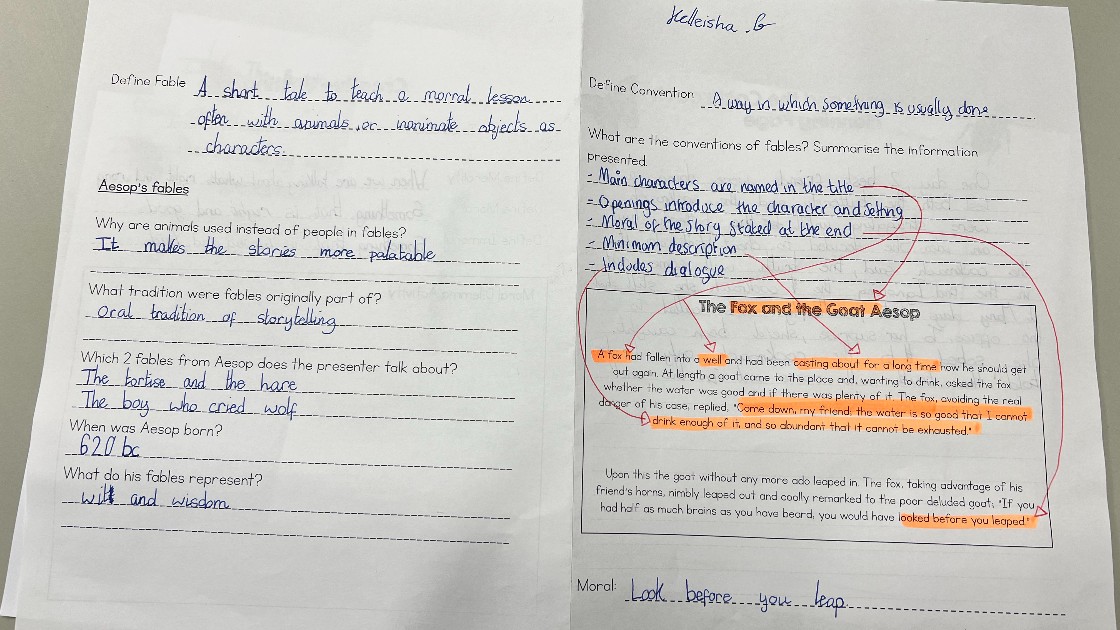 Define Fable A short tale to teach a morral lesson
often with animals or inanimate objects as
characters.
Aesop's fables
Why are animals used instead of people in fables?
It makes the stories more palatable
What tradition were fables originally part of?
oral tradition of storytelling
Which 2 fables from Aesop does the presenter talk about?
The tortise and the hare
The boy who cried wolf
When was Aesop born?
620 bc
What do his fables represent?
wit and wisdom
Kelleisha .G
Define Convention A way in which something is usually done
What are the conventions of fables? Summarise the information
presented.
- Main characters are named in the title
- Openings introduce the character and setting
- Moral of the story stated at the end
- Minimum description
- Includes dialogue
The Fox and the Goat Aesop
A fox had fallen into a well and had been casting about for a long time how he should get
out again. At length a goat came to the place and, wanting to drink, asked the fox
whether the water was good and if there was plenty of it. The fox, avoiding the real
danger of his case, replied, "Come down, my friend; the water is so good that I cannot
drink enough of it, and so abundant that it cannot be exhausted."
Upon this the goat without any more ado leaped in. The fox, taking advantage of his
friend's horns, nimbly leaped out and coolly remarked to the poor deluded goat; "If you
had half as much brains as you have beard, you would have looked before you leaped."
Moral: Look before you leap.